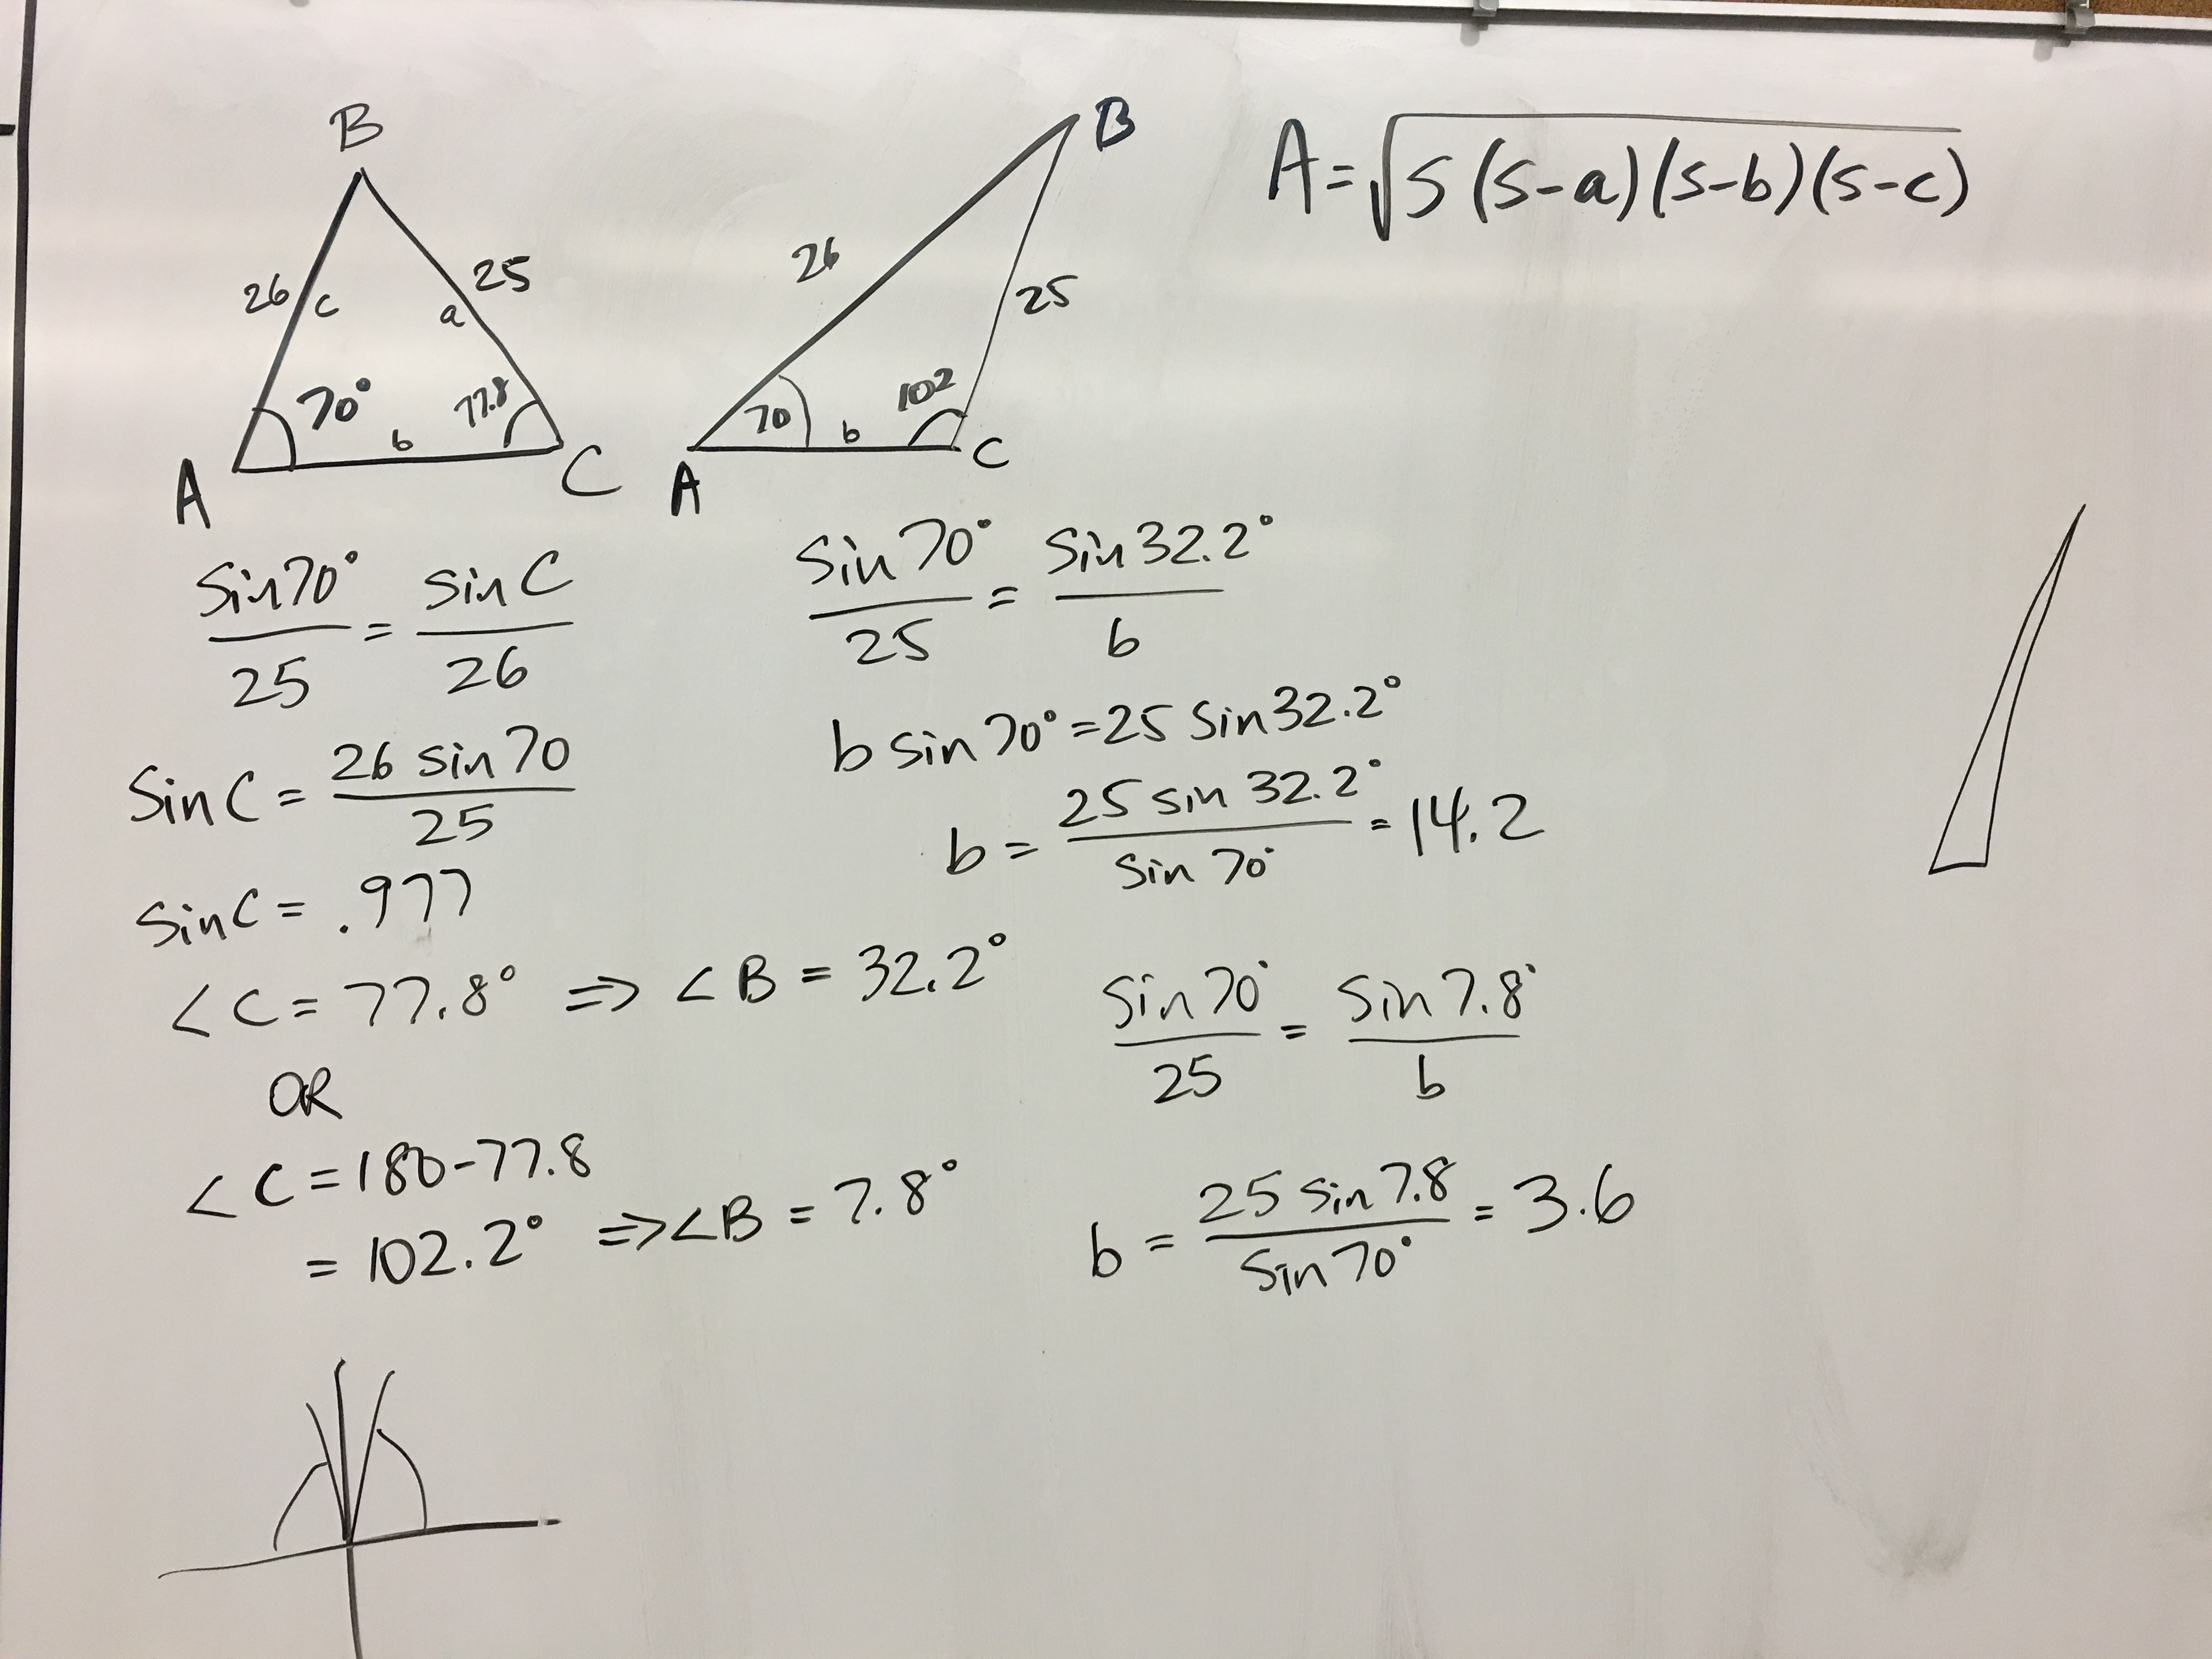 B
26 c
a 25
70°
77.8
b
A
C
B
26
25
70
102
b
A
C
A = √s(s-a)(s-b)(s-c)
sin70°/25 = sin C/26
sin C = 26 sin 70/25
sin C = .977
∠C = 77.8° ⇒ ∠B = 32.2°
OR
∠C = 180-77.8
= 102.2° ⇒ ∠B = 7.8°
sin 70°/25 = sin 32.2°/b
b sin 70° = 25 sin 32.2°
b = 25 sin 32.2°/sin 70° = 14.2
sin 70°/25 = sin 7.8°/b
b = 25 sin 7.8/sin 70° = 3.6